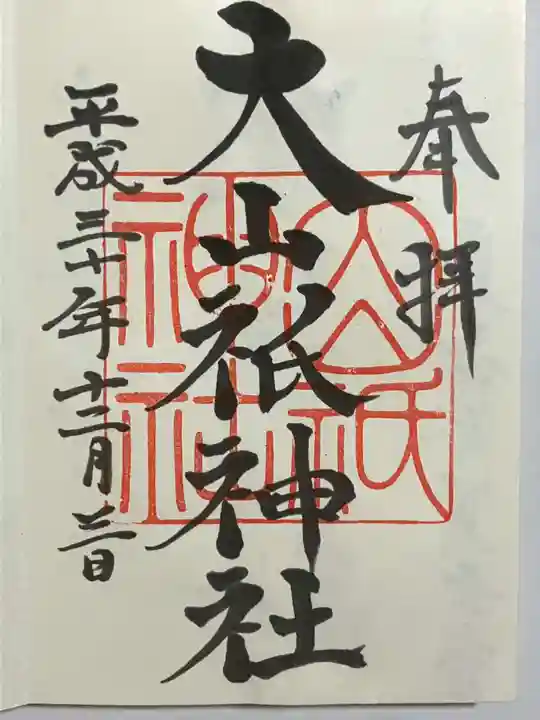 奉拝
大山祇神社
大山祇神社
平成三十年十二月二日